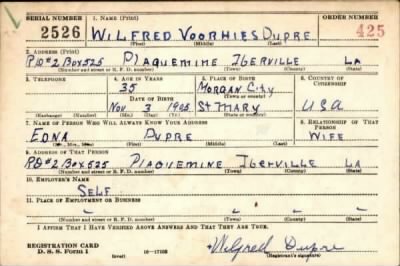 SERIAL NUMBER 1. NAME (Print) ORDER NUMBER
2526 WILFRED VOORHIES DUPRE 425
(First) (Middle) (Last)
2. ADDRESS (Print)
R.D#2 Box 525 PLAQUEMINE IBERVILLE LA
(Number and street or R. F. D. number) (Town) (County) (State)
3. TELEPHONE 4. AGE IN YEARS 5. PLACE OF BIRTH 6. COUNTRY OF CITIZENSHIP
35 MORGAN CITY
DATE OF BIRTH (Town or county)
NOV. 3 ST MARY USA
(Mo.) (Day) (Yr.) (State or country)
7. NAME OF PERSON WHO WILL ALWAYS KNOW YOUR ADDRESS 8. RELATIONSHIP OF THAT PERSON
EDNA DUPRE WIFE
(Mr., Mrs., Miss) (First) (Middle) (Last)
9. ADDRESS OF THAT PERSON
R.D#2 Box 525 PLAQUEMINE IBERVILLE LA
(Number and street or R. F. D. number) (Town) (County) (State)
10. EMPLOYER'S NAME
SELF
11. PLACE OF EMPLOYMENT OR BUSINESS
(Number and street or R. F. D. number) (Town) (County) (State)
I AFFIRM THAT I HAVE VERIFIED ABOVE ANSWERS AND THAT THEY ARE TRUE.
REGISTRATION CARD
D. S. S. Form 1 (over) 16-17105 Wilfred Dupre
(Registrant's signature)